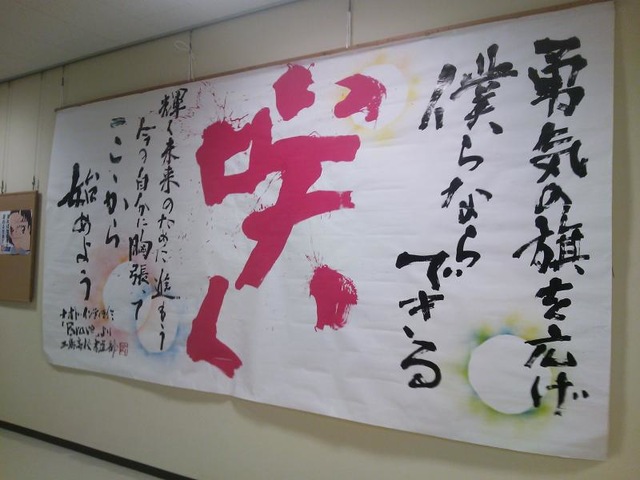 勇気の旗を広げ
僕らならできる
咲く
輝く未来のために進もう
今の自分に胸張って
ここから
始めよう
ナオト・インティライミ
"Brave"より
三島高校書道部